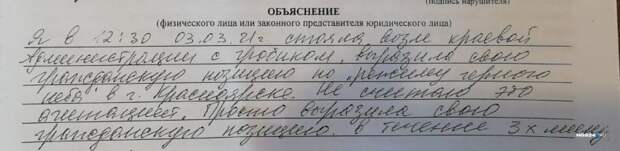 (подпись нарушителя)
ОБЪЯСНЕНИЕ
(физического лица или законного представителя юридического лица)
Я в 12:30 03.03.21г стояла возле краевой
Администрации с гробиком, выразила свою
гражданскую позицию по „режиму черного
неба" в г. Красноярске. Не считаю это
агитацией. Просто выразила свою
гражданскую позицию. В течение 3х месяц